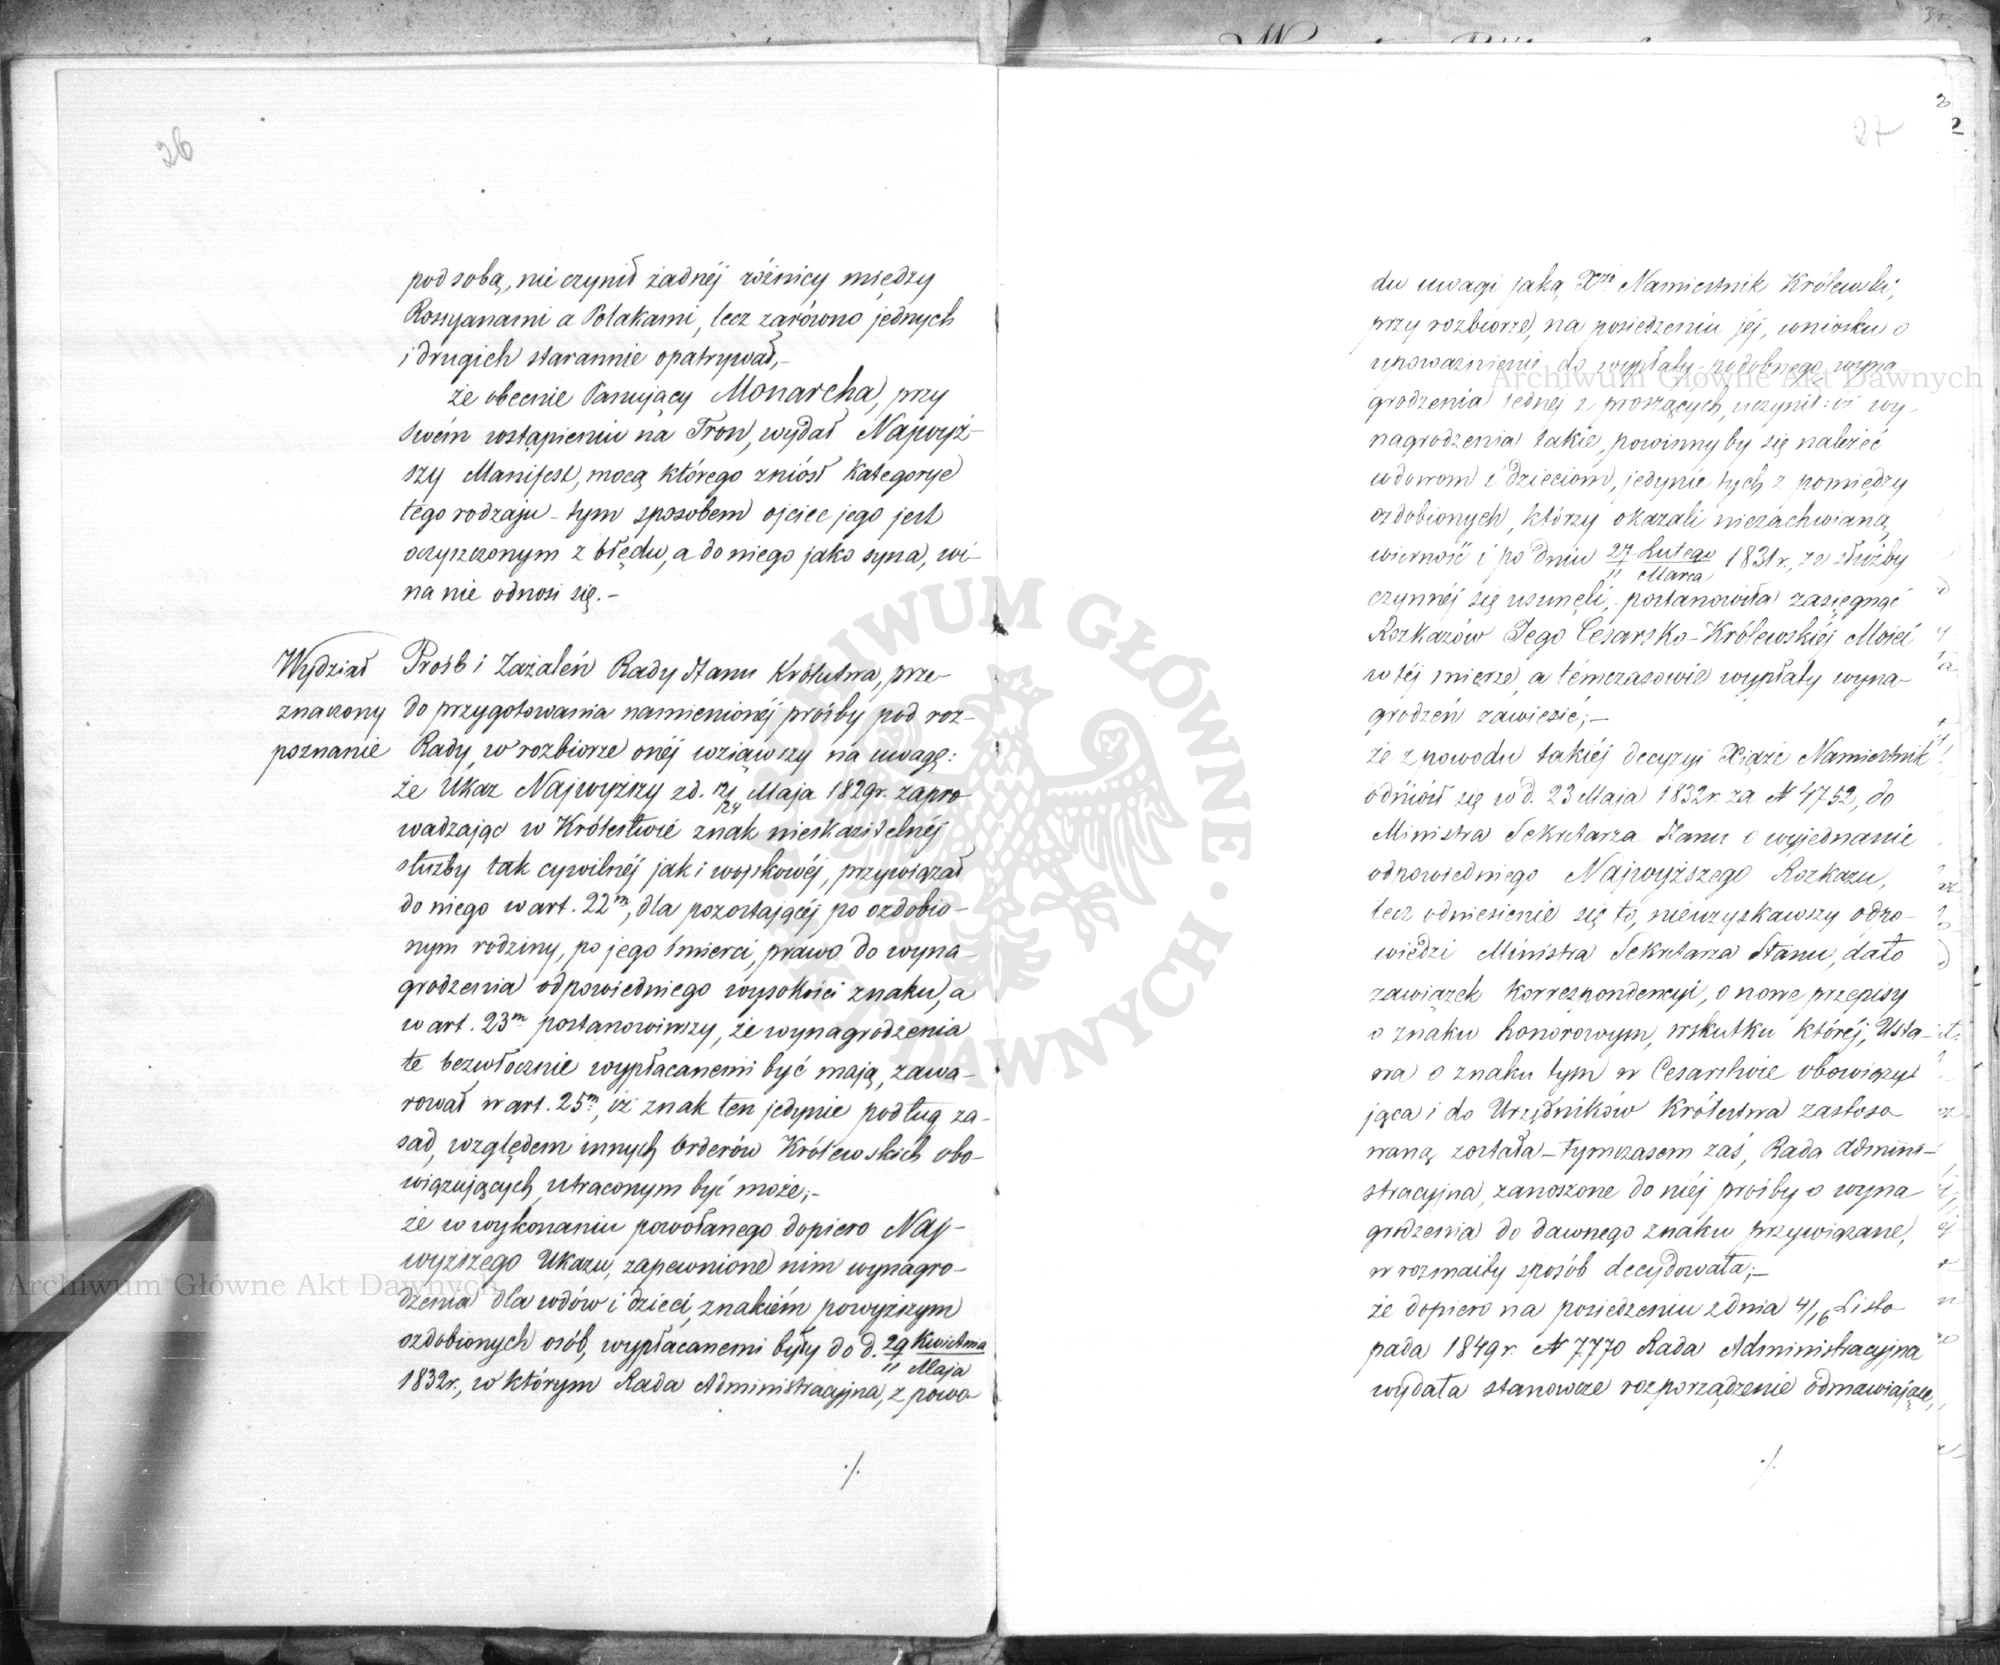 26
pod sobą, nie czynił żadnéj różnicy między
Rossyanami a Polakami, lecz zarówno jednych
i drugich starannie opatrywał,-
że obecnie Panujący Monarcha, przy
swém wstąpieniu na Tron, wydał Najwyż-
szy Manifest, mocą którego zniósł Kategorye
tego rodzaju - tym sposobem ojciec jego jest
oczyszczonym z błędu, a do niego jako syna, wi-
na nie odnosi się.-
Wydział Próśb i Zażaleń Rady Stanu Królestwa, prze-
znaczony do przygotowania namienionéj prośby pod roz-
poznanie Rady, w rozbiorze onéj wziąwszy na uwagę:
że Ukaz Najwyższy z d. 12/24 Maja 1829r. zapro
wadzając w Królestwie znak nieskazitelnéj
służby tak cywilnéj jak i wojskowéj, przywiązał
do niego w art. 22m, dla pozostającéj po ozdobio-
nym rodziny, po jego śmierci, prawo do wyna-
grodzenia odpowiedniego wysokości znaku, a
w art. 23m postanowiwszy, że wynagrodzenia
te bezwłocznie wypłacanemi być mają, zawa-
rował w art. 25m, iż znak ten jedynie podług za-
sad, względem innych Orderów Królewskich obo-
wiązujących, utraconym być może;-
że w wykonaniu powołanego dopiero Naj-
wyższego Ukazu, zapewnione nim wynagro-
dzenia dla wdów i dzieci, znakiem powyższym
ozdobionych osób, wypłacanemi były do d. 29 Kwietnia
11 Maja
1832r., w którym Rada Administracyjna, z powo-
./.
27
du uwagi jaką Xże Namiestnik Królewski,
przy rozbiorze, na posiedzeniu jéj, wniosku o
upoważnienie do wypłaty podobnego wyna
grodzenia jednej z proszących, uczynił: iż wy-
nagrodzenia takie, powinny by się należeć
wdowom i dzieciom, jedynie tych z pomiędzy
ozdobionych, którzy okazali niezachwianą
wierność i po dniu 27 Lutego 1831r., ze służby
11 Marca
czynnéj się usunęli, - postanowiła zasięgnąć
Rozkazów Jego Cesarsko-Królewskiéj Mości
w téj mierze, a témczasowie wypłaty wyna-
grodzeń zawiesić;-
że z powodu takiéj decyzyi Xiąże Namiestnik
odniósł się w d. 23 Maja 1832r. za N 4752, do
Ministra Sekretarza Stanu o wyjednanie
odpowiedniego Najwyższego Rozkazu,
lecz odniesienie się to, nieuzyskawszy odpo-
wiedzi Ministra Sekretarza Stanu, dało
zawiązek korrespondencyi, o nowe przepisy
o znaku honorowym, wskutku któréj, Usta-
wa o znaku tym w Cesarstwie obowiązu
jąca i do Urzędników Królestwa zastoso
waną została - tymczasem zaś, Rada Admini-
stracyjna, zanoszone do niéj prośby o wyna
grodzenia do dawnego znaku przywiązane,
w rozmaity sposób decydowała;-
że dopiero na posiedzeniu z dnia 4/16 Listo
pada 1849r. N 7770 Rada Administracyjna
wydała stanowcze rozporządzenie odmawiające,
./.
Archiwum Główne Akt Dawnych
Archiwum Główne Akt Dawnych
ARCHIWUM GŁÓWNE · AKT DAWNYCH ·